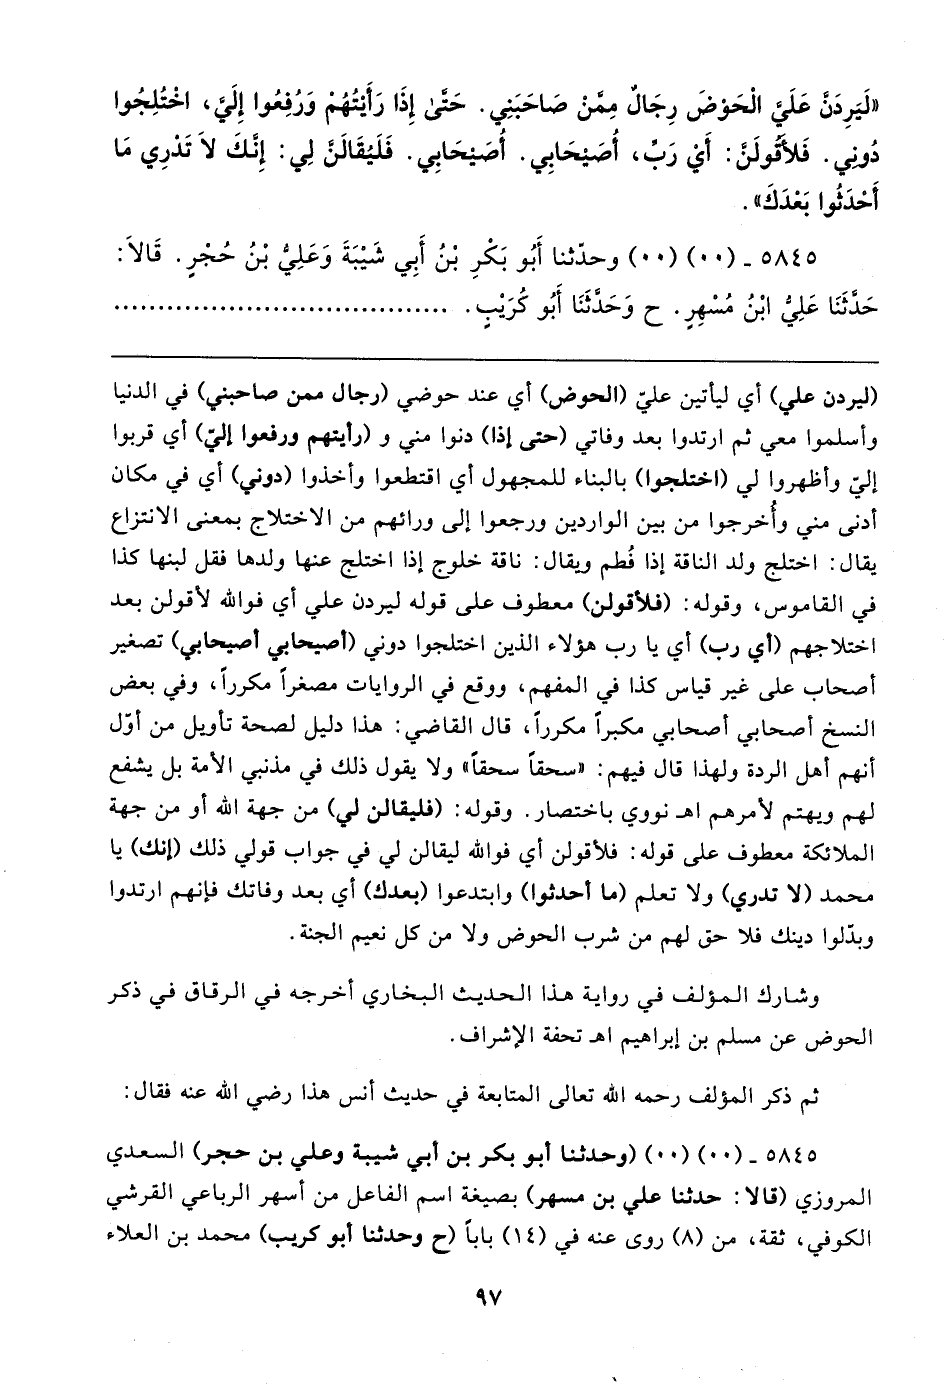 «لَيَرِدَنَّ عَلَيَّ الْحَوْضَ رِجَالٌ مِمَّنْ صَاحَبَنِي. حَتَّىٰ إِذَا رَأَيْتُهُمْ وَرُفِعُوا إِلَيَّ، اخْتُلِجُوا
دُونِي. فَلَأَقُولَنَّ: أَيْ رَبِّ، أُصَيْحَابِي. أُصَيْحَابِي. فَلَيُقَالَنَّ لِي: إِنَّكَ لاَ تَدْرِي مَا
أَحْدَثُوا بَعْدَكَ».
٥٨٤٥ - (٠٠) (٠٠) وحدّثنا أَبُو بَكْرِ بْنُ أَبِي شَيْبَةَ وَعَلِيُّ بْنُ حُجْرٍ. قَالاَ:
حَدَّثَنَا عَلِيُّ ابْنُ مُسْهِرٍ. ح وَحَدَّثَنَا أَبُو كُرَيْبٍ. .....................................
(ليردن علي) أي ليأتين عليّ (الحوض) أي عند حوضي (رجال ممن صاحبني) في الدنيا
وأسلموا معي ثم ارتدوا بعد وفاتي (حتى إذا) دنوا مني و (رأيتهم ورفعوا إليّ) أي قربوا
إليّ وأظهروا لي (اختلجوا) بالبناء للمجهول أي اقتطعوا وأخذوا (دوني) أي في مكان
أدنى مني وأُخرجوا من بين الواردين ورجعوا إلى ورائهم من الاختلاج بمعنى الانتزاع
يقال: اختلج ولد الناقة إذا فُطم ويقال: ناقة خلوج إذا اختلج عنها ولدها فقل لبنها كذا
في القاموس، وقوله: (فلأقولن) معطوف على قوله ليردن علي أي فوالله لأقولن بعد
اختلاجهم (أي رب) أي يا رب هؤلاء الذين اختلجوا دوني (أصيحابي أصيحابي) تصغير
أصحاب على غير قياس كذا في المفهم، ووقع في الروايات مصغراً مكرراً، وفي بعض
النسخ أصحابي أصحابي مكبراً مكرراً، قال القاضي: هذا دليل لصحة تأويل من أوّل
أنهم أهل الردة ولهذا قال فيهم: «سحقاً سحقاً» ولا يقول ذلك في مذنبي الأمة بل يشفع
لهم ويهتم لأمرهم اهـ نووي باختصار. وقوله: (فليقالن لي) من جهة الله أو من جهة
الملائكة معطوف على قوله: فلأقولن أي فوالله ليقالن لي في جواب قولي ذلك (إنك) يا
محمد (لا تدري) ولا تعلم (ما أحدثوا) وابتدعوا (بعدك) أي بعد وفاتك فإنهم ارتدوا
وبدّلوا دينك فلا حق لهم من شرب الحوض ولا من كل نعيم الجنة.
وشارك المؤلف في رواية هذا الحديث البخاري أخرجه في الرقاق في ذكر
الحوض عن مسلم بن إبراهيم اهـ تحفة الإشراف.
ثم ذكر المؤلف رحمه الله تعالى المتابعة في حديث أنس هذا رضي الله عنه فقال:
٥٨٤٥ - (٠٠) (٠٠) (وحدثنا أبو بكر بن أبي شيبة وعلي بن حجر) السعدي
المروزي (قالا: حدثنا علي بن مسهر) بصيغة اسم الفاعل من أسهر الرباعي القرشي
الكوفي، ثقة، من (٨) روى عنه في (١٤) باباً (ح وحدثنا أبو كريب) محمد بن العلاء
٩٧